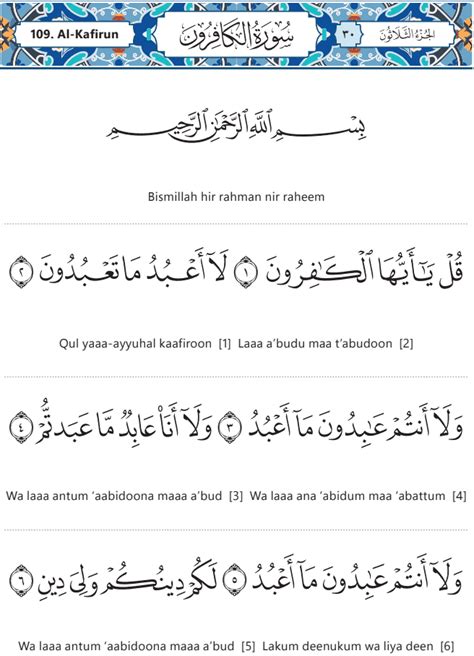 109. Al-Kafirun سُورَةُ الكَافِرُونَ ٣٠ الجُزْءُ الثَّلَاثُونَ
بِسْمِ ٱللَّهِ ٱلرَّحْمَٰنِ ٱلرَّحِيمِ
Bismillah hir rahman nir raheem
قُلْ يَٰٓأَيُّهَا ٱلْكَٰفِرُونَ ١ لَآ أَعْبُدُ مَا تَعْبُدُونَ ٢
Qul yaaa-ayyuhal kaafiroon [1] Laaa a’budu maa t’abudoon [2]
وَلَآ أَنتُمْ عَٰبِدُونَ مَآ أَعْبُدُ ٣ وَلَآ أَنَا۠ عَابِدٌ مَّا عَبَدتُّمْ ٤
Wa laaa antum ‘aabidoona maaa a’bud [3] Wa laaa ana ‘abidum maa ‘abattum [4]
وَلَآ أَنتُمْ عَٰبِدُونَ مَآ أَعْبُدُ ٥ لَكُمْ دِينُكُمْ وَلِىَ دِينِ ٦
Wa laaa antum ‘aabidoona maaa a’bud [5] Lakum deenukum wa liya deen [6]